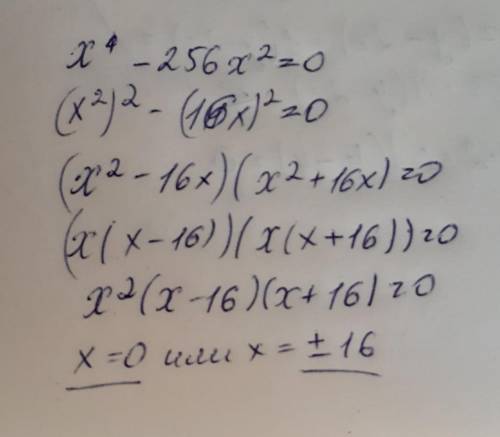 x⁴ - 256x² = 0
(x²)² - (16x)² = 0
(x² - 16x)(x² + 16x) = 0
(x(x - 16))(x(x + 16)) = 0
x²(x - 16)(x + 16) = 0
x = 0 или x = ± 16